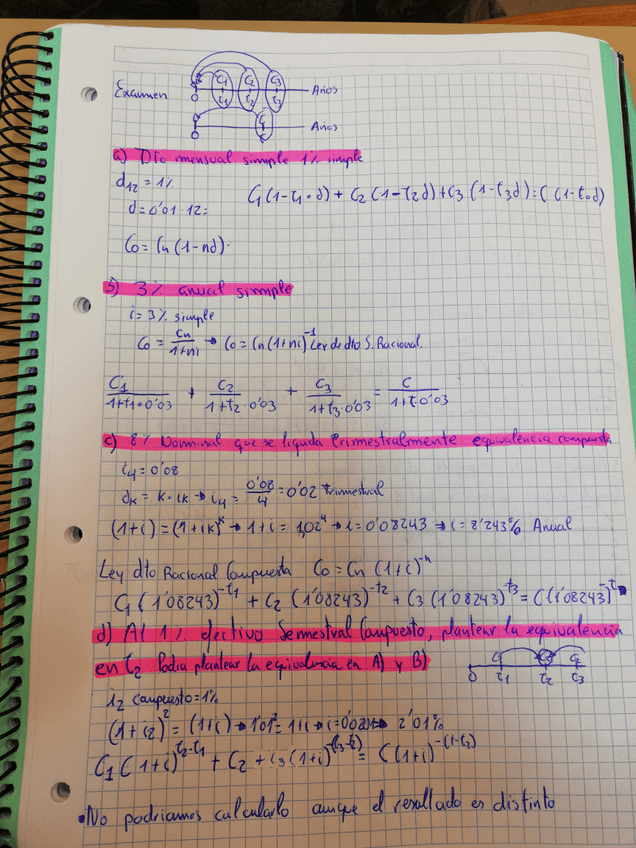 C1 C2 C3
Examen
0 t1 t2 t3 Años
C
0 t Años
a) Dto mensual simple 1% simple
d12 = 1%
C1 (1-t1·d) + C2 (1-t2d) + C3 (1-t3d) = C (1-t·d)
d = 0'01·12 =
C0 = Cn (1-nd)
b) 3% anual simple
i = 3% simple
C0 = Cn/1+ni → C0 = Cn (1+ni)^-1 Ley de dto S. Racional.
C1/1+t1·0'03 + C2/1+t2·0'03 + C3/1+t3·0'03 = C/1+t·0'03
c) 8% Nominal que se liquida trimestralmente equivalencia compuesta
i4 = 0'08
Jk = k·ik → i4 = 0'08/4 = 0'02 trimestral
(1+i) = (1+ik)^k → 1+i = 1,02^4 → i = 0'08243 → i = 8'243% Anual
Ley dto Racional Compuesta C0 = Cn (1+i)^-n
C1 (1'08243)^-t1 + C2 (1'08243)^-t2 + C3 (1'08243)^-t3 = C (1'08243)^-t
d) Al 1% efectivo Semestral Compuesto, plantear la equivalencia
en t2 Podia plantear la equivalencia en A) y B)
C1 C2 C3
0 t1 t2 t3
i2 compuesto = 1%
(1+i2)^2 = (1+i) → 1'01^2 = 1+i → i = 0'0201 → 2'01%
C1 (1+i)^t2-t1 + C2 + C3 (1+i)^-(t3-t2) = C (1+i)^-(t-t2)
No podriamos calcularlo aunque el resultado es distinto